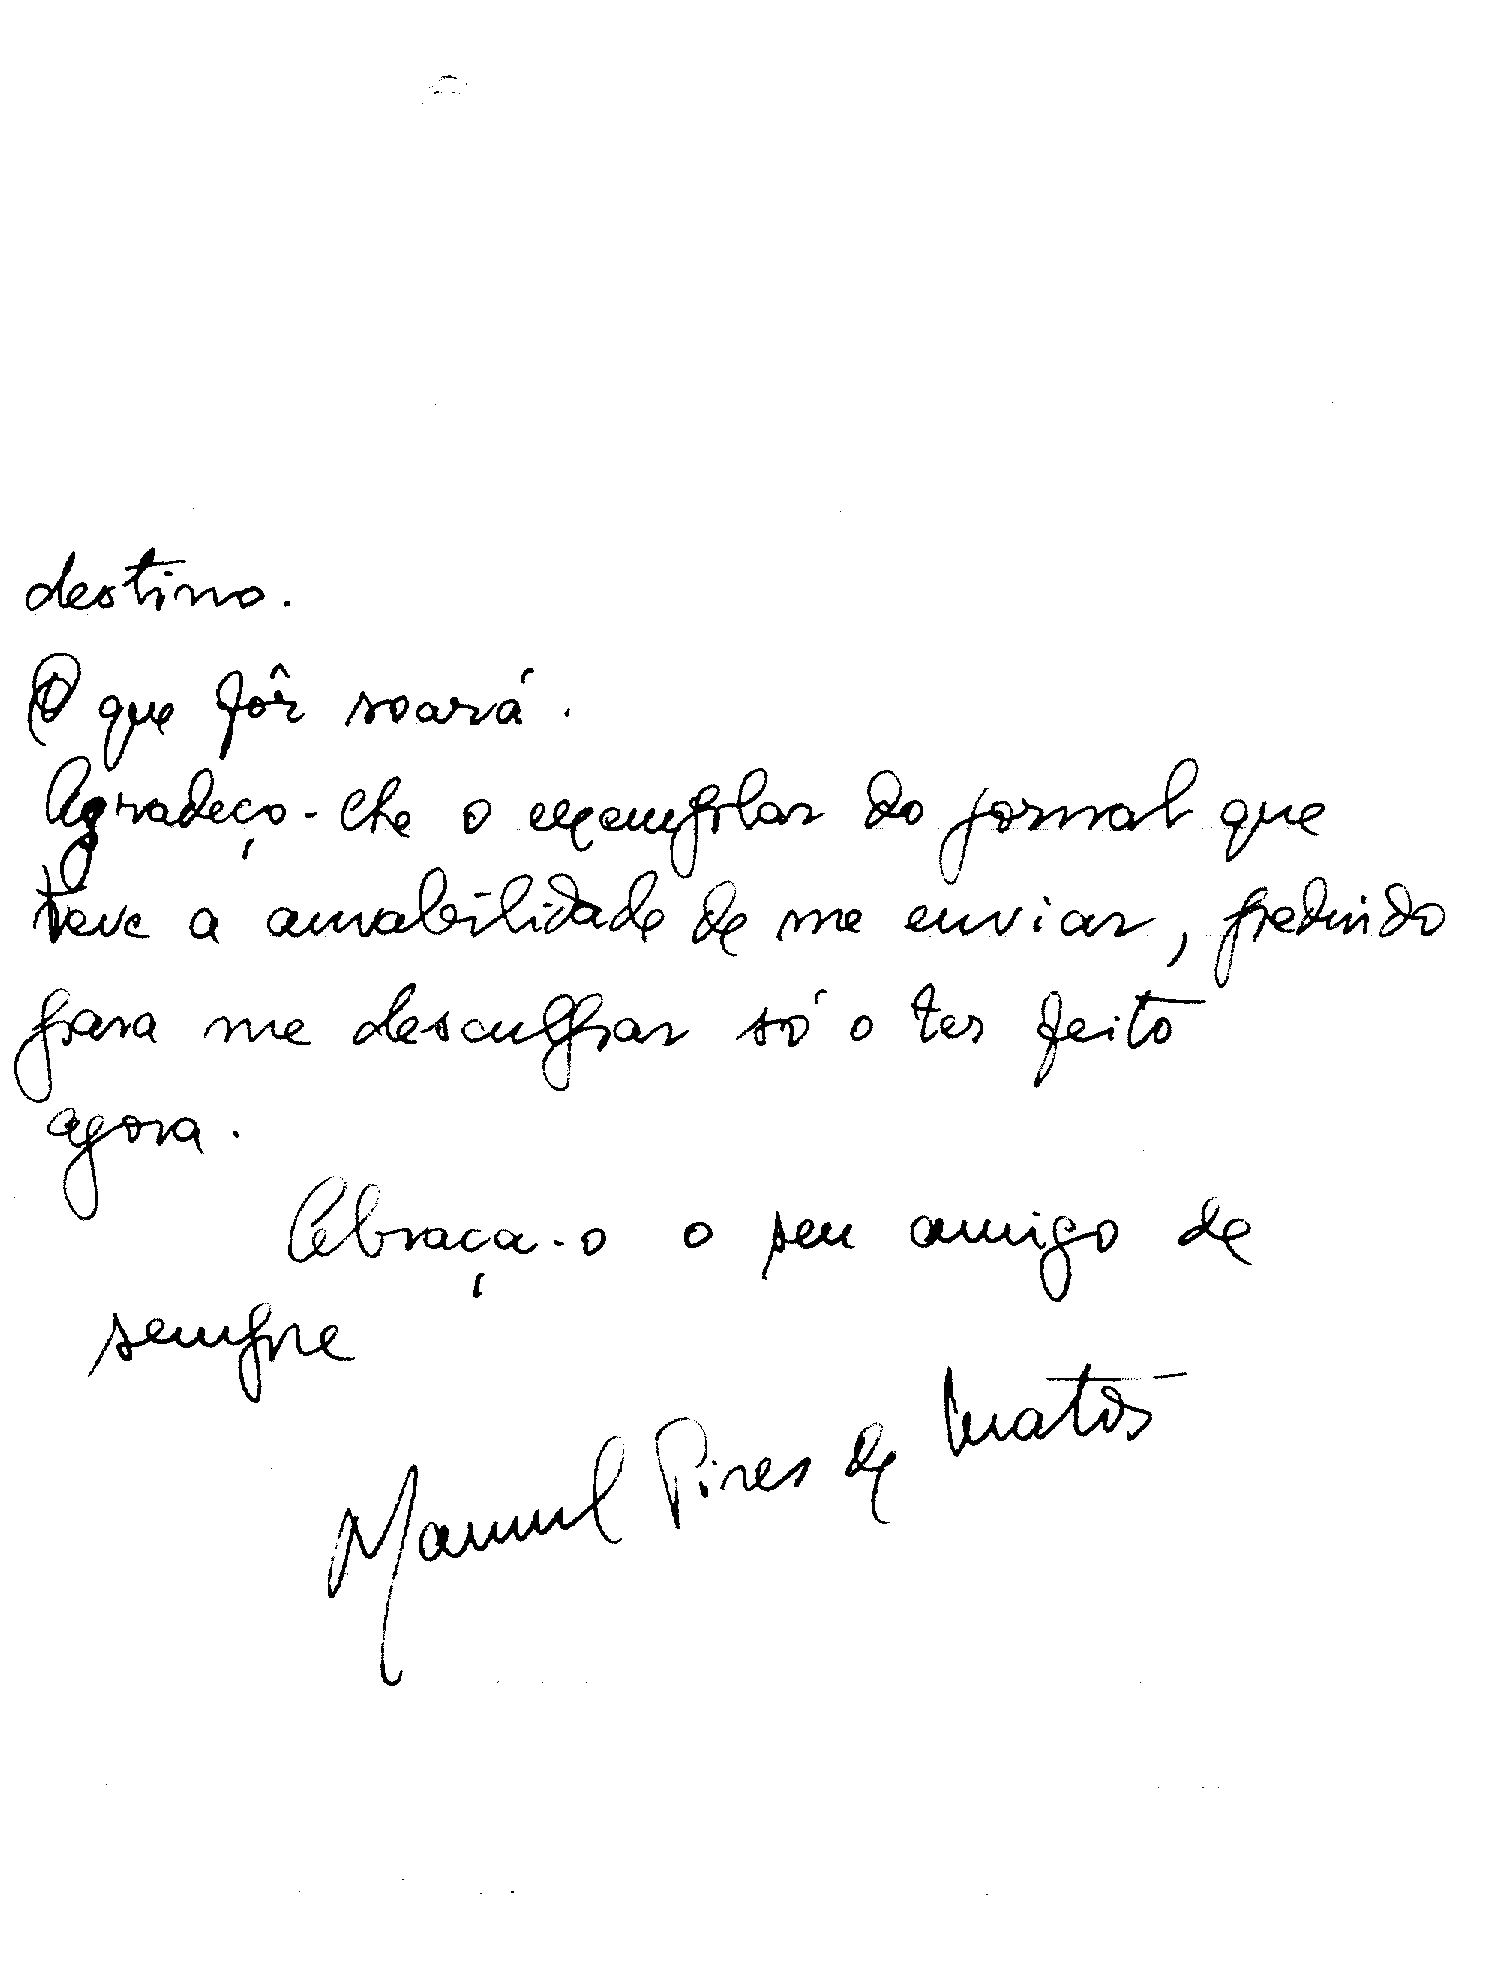 destino.
O que fôr soará.
Agradeço-lhe o exemplar do jornal que
teve a amabilidade de me enviar, pedindo
para me desculpar só o ter feito
agora.
Abraça-o o seu amigo de
sempre
Manuel Pires de Matos